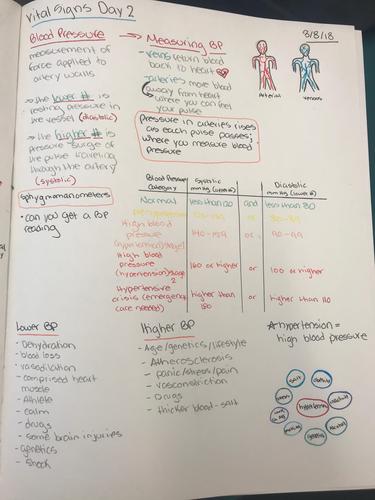 Vital Signs Day 2
8/8/18
Blood Pressure
measurement of
force applied to
artery walls
→ the lower # is
resting pressure in
the vessel (diastolic)
→ the higher # is
pressure surge of
the pulse traveling
through the artery
(systolic)
Sphygmomanometers
• can you get a BP
reading
→ Measuring BP
- veins return blood
back to heart
- arteries move blood
away from heart
where you can feel
your pulse
Arterial
venous
Pressure in arteries rises
as each pulse passes;
where you measure blood
pressure
Blood Pressure Category | Systolic mm Hg (upper #) | | Diastolic mm Hg (lower #)
Normal | less than 120 | and | less than 80
prehypertension | 120-139 | or | 80-89
High blood pressure (hypertension) stage 1 | 140-159 | or | 90-99
High blood pressure (hypertension) stage 2 | 160 or higher | or | 100 or higher
Hypertensive crisis (emergency care needed) | higher than 180 | or | higher than 110
Lower BP
- Dehydration
- blood loss
- vasodilation
- comprised heart
muscle
- Athlete
- calm
- drugs
- some brain injuries
- genetics
- shock
Higher BP
- Age/genetics/lifestyle
- Atherosclerosis
- panic/stress/pain
- vasoconstriction
- Drugs
- thicker blood - salt
* hypertension =
high blood pressure
salt
hypertension
genetics
alcohol